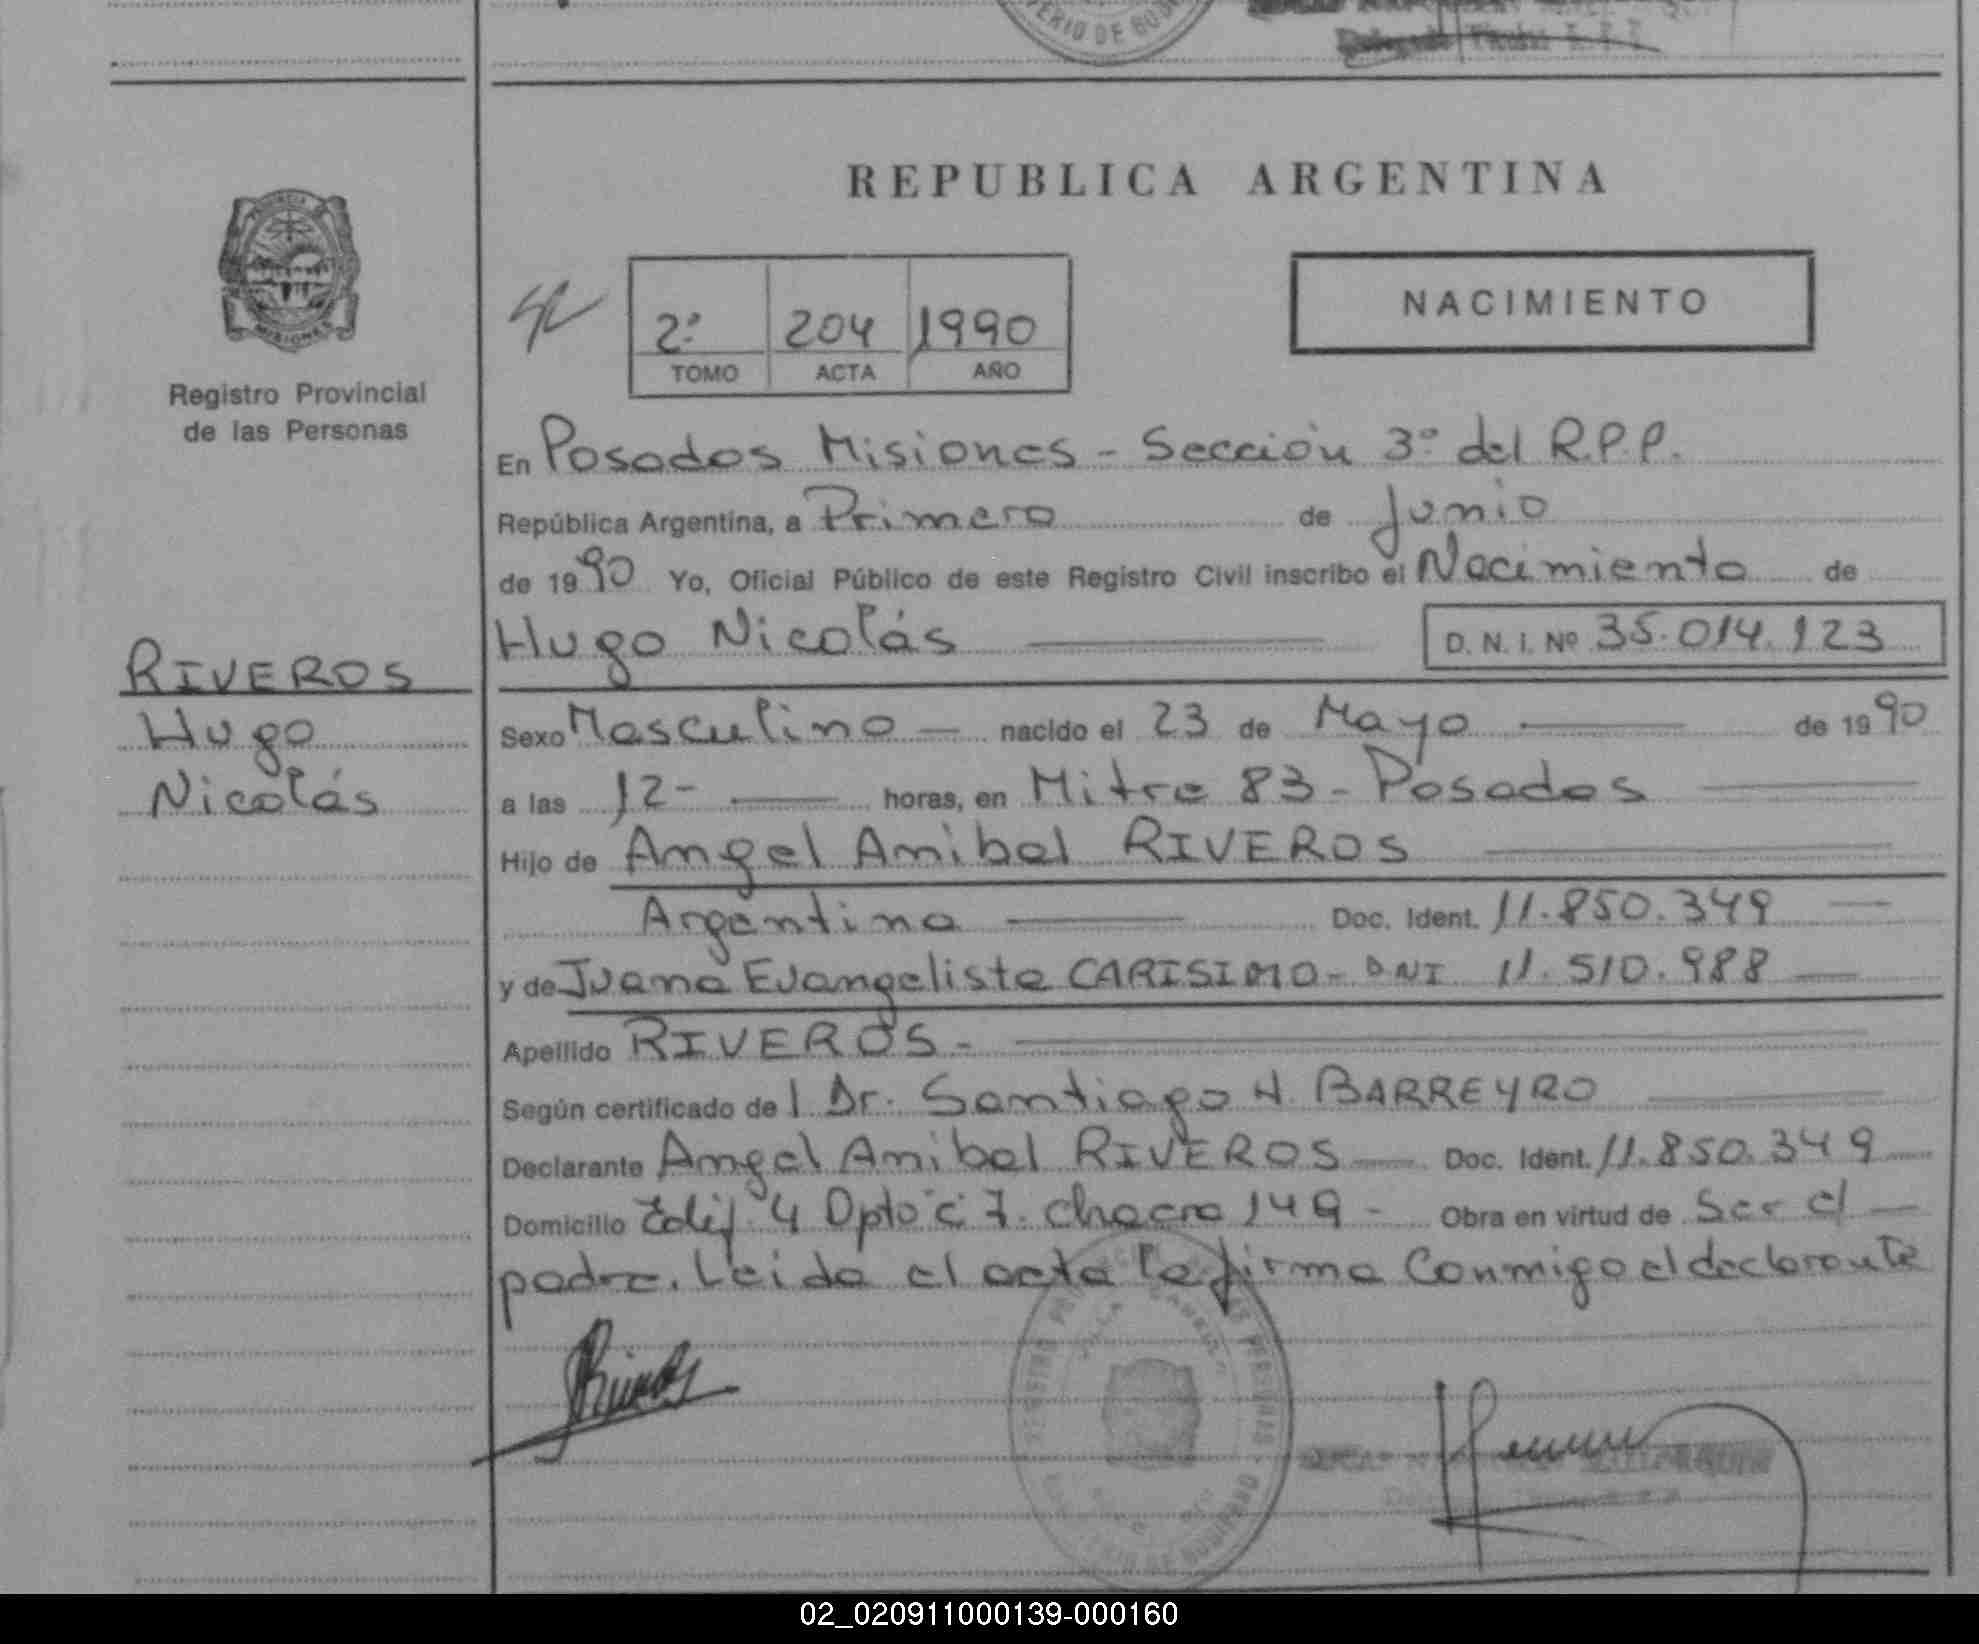 MINISTERIO DE GOBIERNO
Delegado Titular R.P.P.
REPUBLICA ARGENTINA
PROVINCIA DE
MISIONES
Registro Provincial
de las Personas
2º 204 1990
TOMO ACTA AÑO
NACIMIENTO
En Posadas Misiones - Sección 3º del R.P.P.
República Argentina, a Primero de Junio
de 1990 Yo, Oficial Público de este Registro Civil inscribo el Nacimiento de
Hugo Nicolás D. N. I. Nº 35.014.123
RIVEROS
Hugo
Nicolás
Sexo Masculino nacido el 23 de Mayo de 1990
a las 12- horas, en Mitre 83 - Posadas
Hijo de Angel Anibal RIVEROS
Argentina Doc. Ident. 11.850.349
y de Juana Evangelista CARISIMO - DNI 11.510.988
Apellido RIVEROS -
Según certificado de l Dr. Santiago H. BARREYRO
Declarante Angel Anibal RIVEROS Doc. Ident. 11.850.349
Domicilio Edif. 4 Dpto "C" 7. Chacra 149 - Obra en virtud de Ser el
padre. Leida el acta la firma Conmigo el declarante
02_020911000139-000160